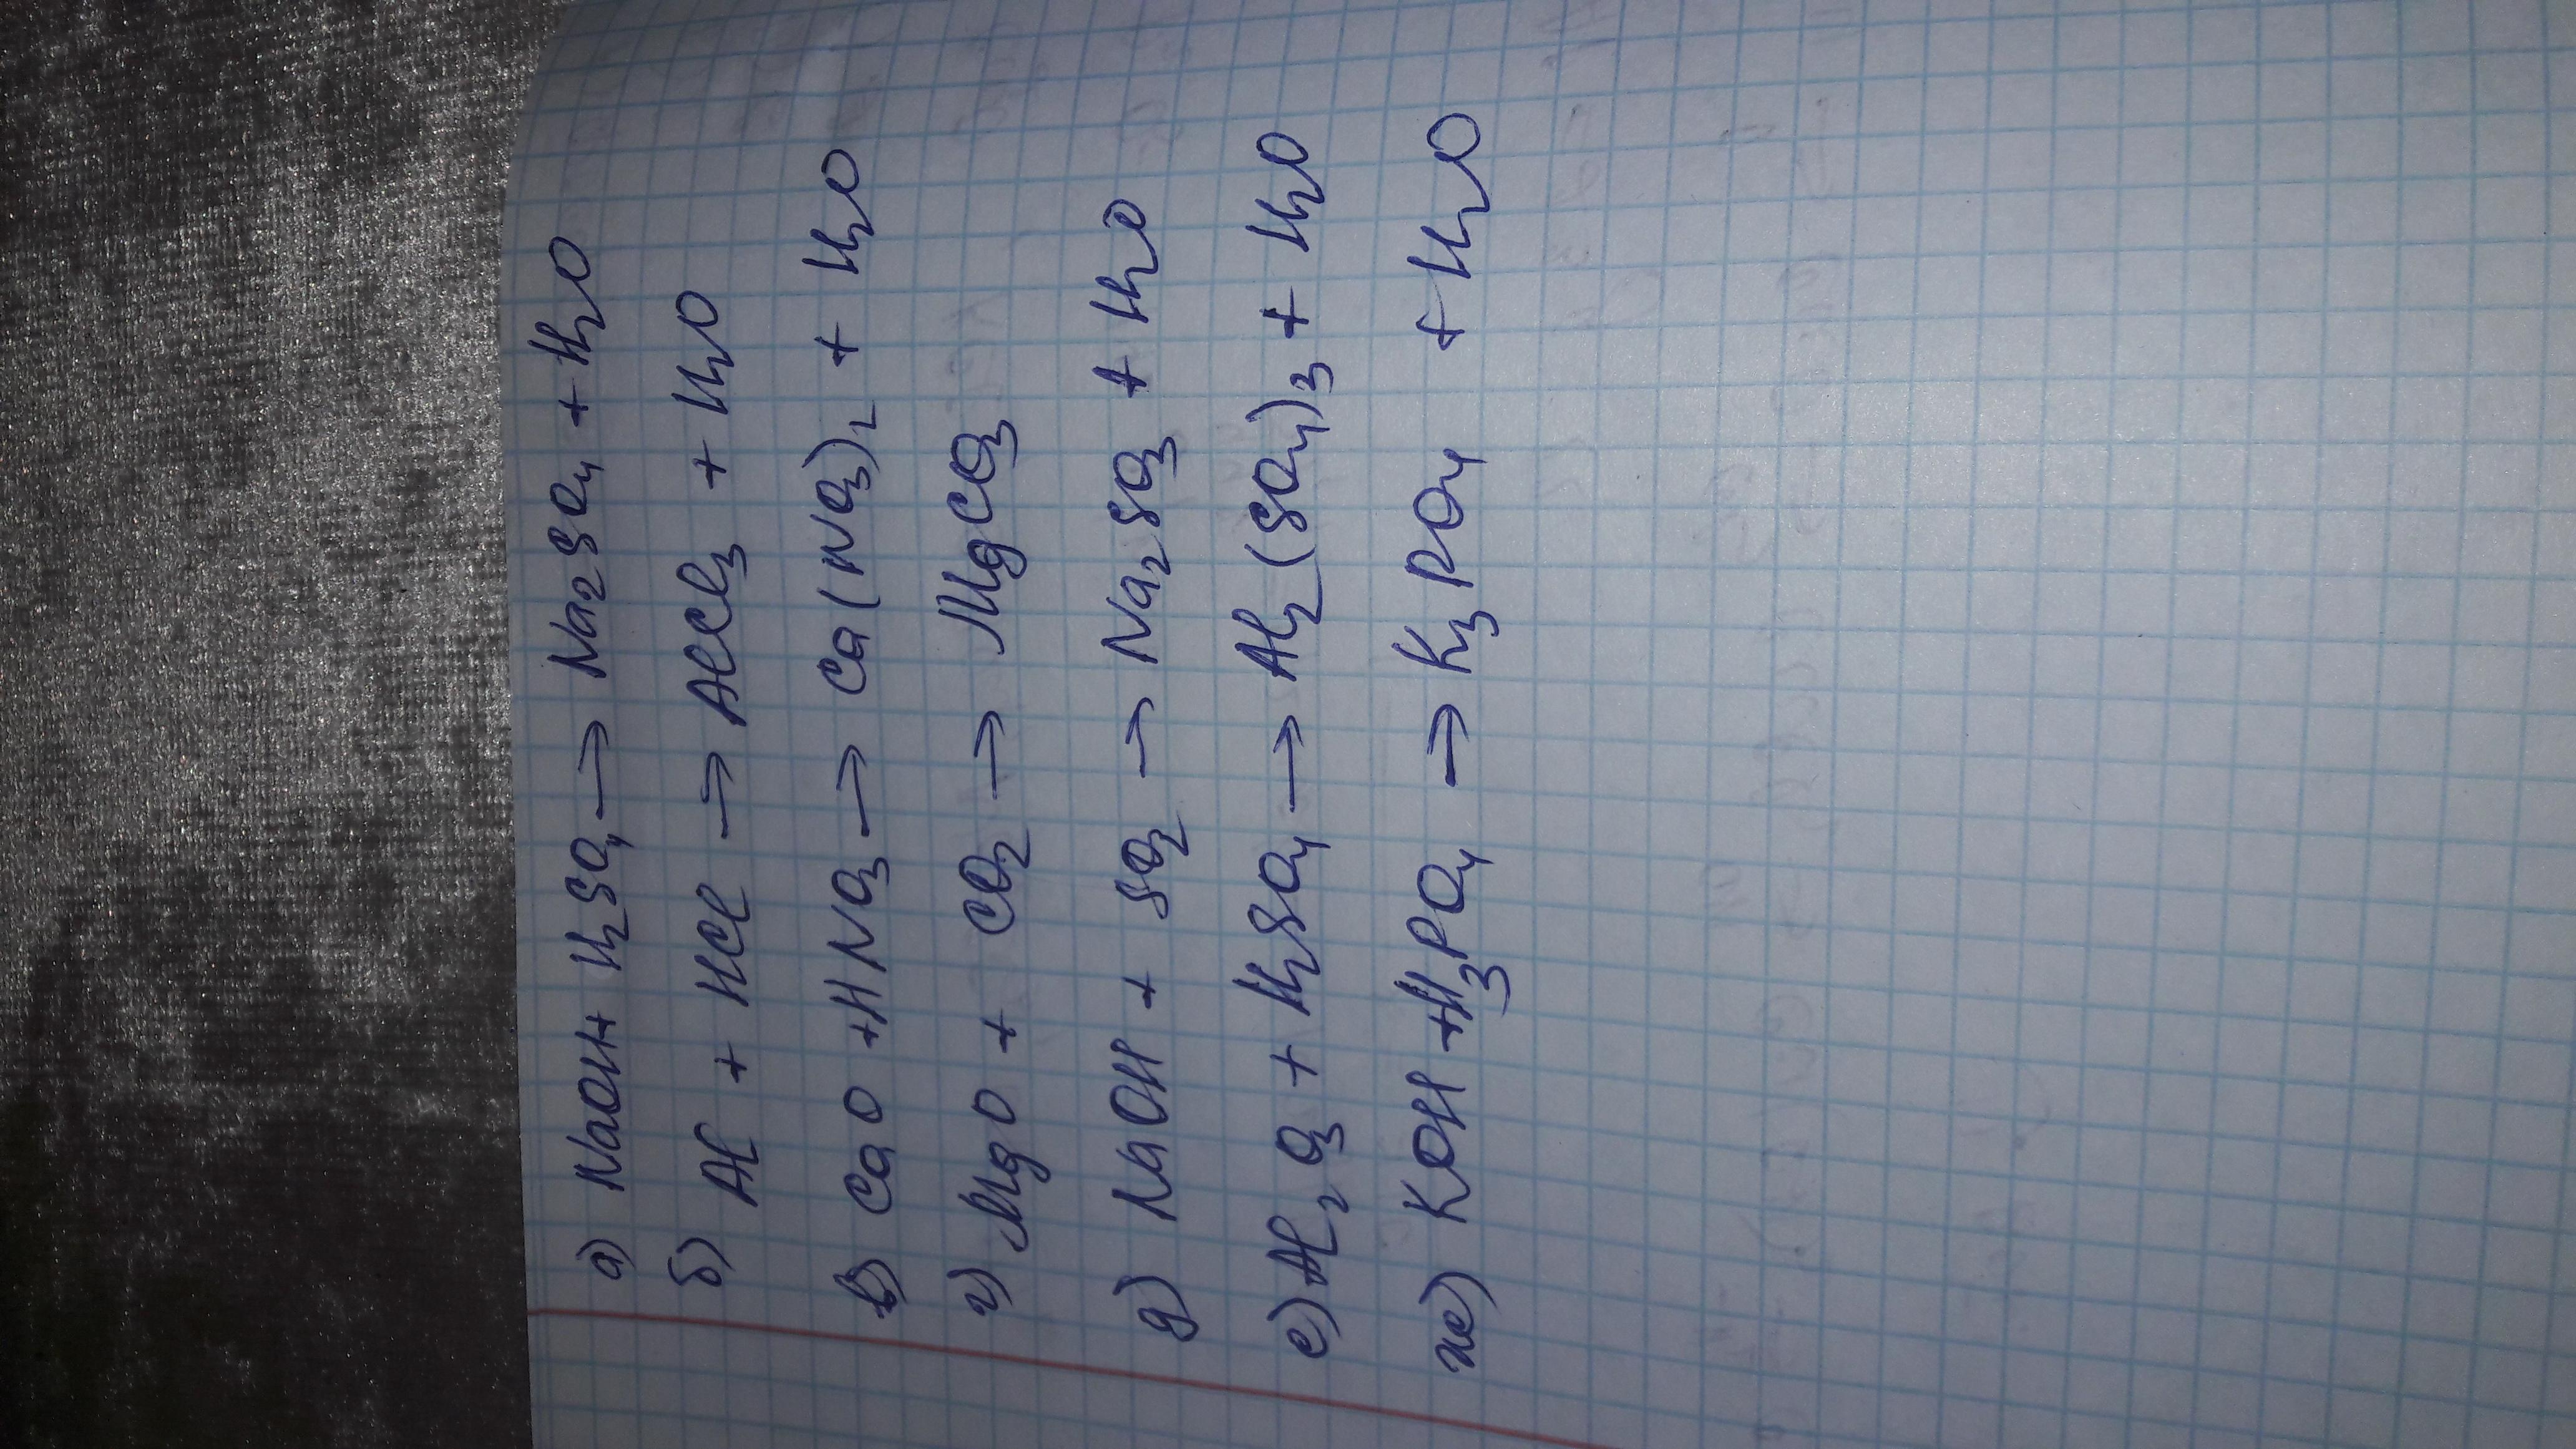 а) NaOH + H₂SO₄ → Na₂SO₄ + H₂O
б) Al + HCl → AlCl₃ + H₂O
в) CaO + HNO₃ → Ca(NO₃)₂ + H₂O
г) MgO + CO₂ → MgCO₃
д) NaOH + SO₂ → Na₂SO₃ + H₂O
е) Al₂O₃ + H₂SO₄ → Al₂(SO₄)₃ + H₂O
ж) KOH + H₃PO₄ → K₃PO₄ + H₂O